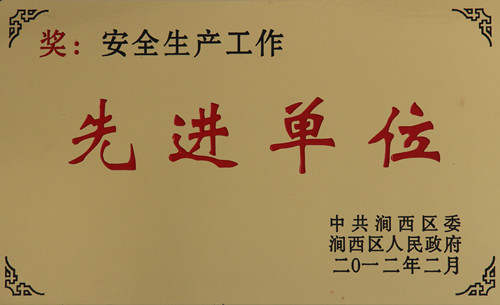 奖：安全生产工作
先进单位
中共涧西区委
涧西区人民政府
二〇一二年二月